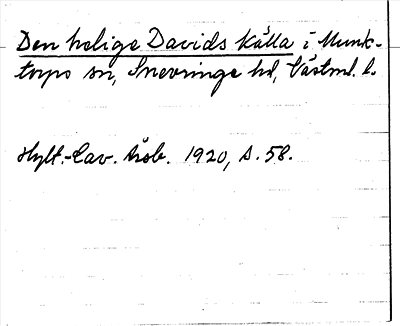 Den helige Davids källa i Munk-
torps sn, Snevringe hd, Västml. l.
Hylt.-Cav. Årsb. 1920, s. 58.